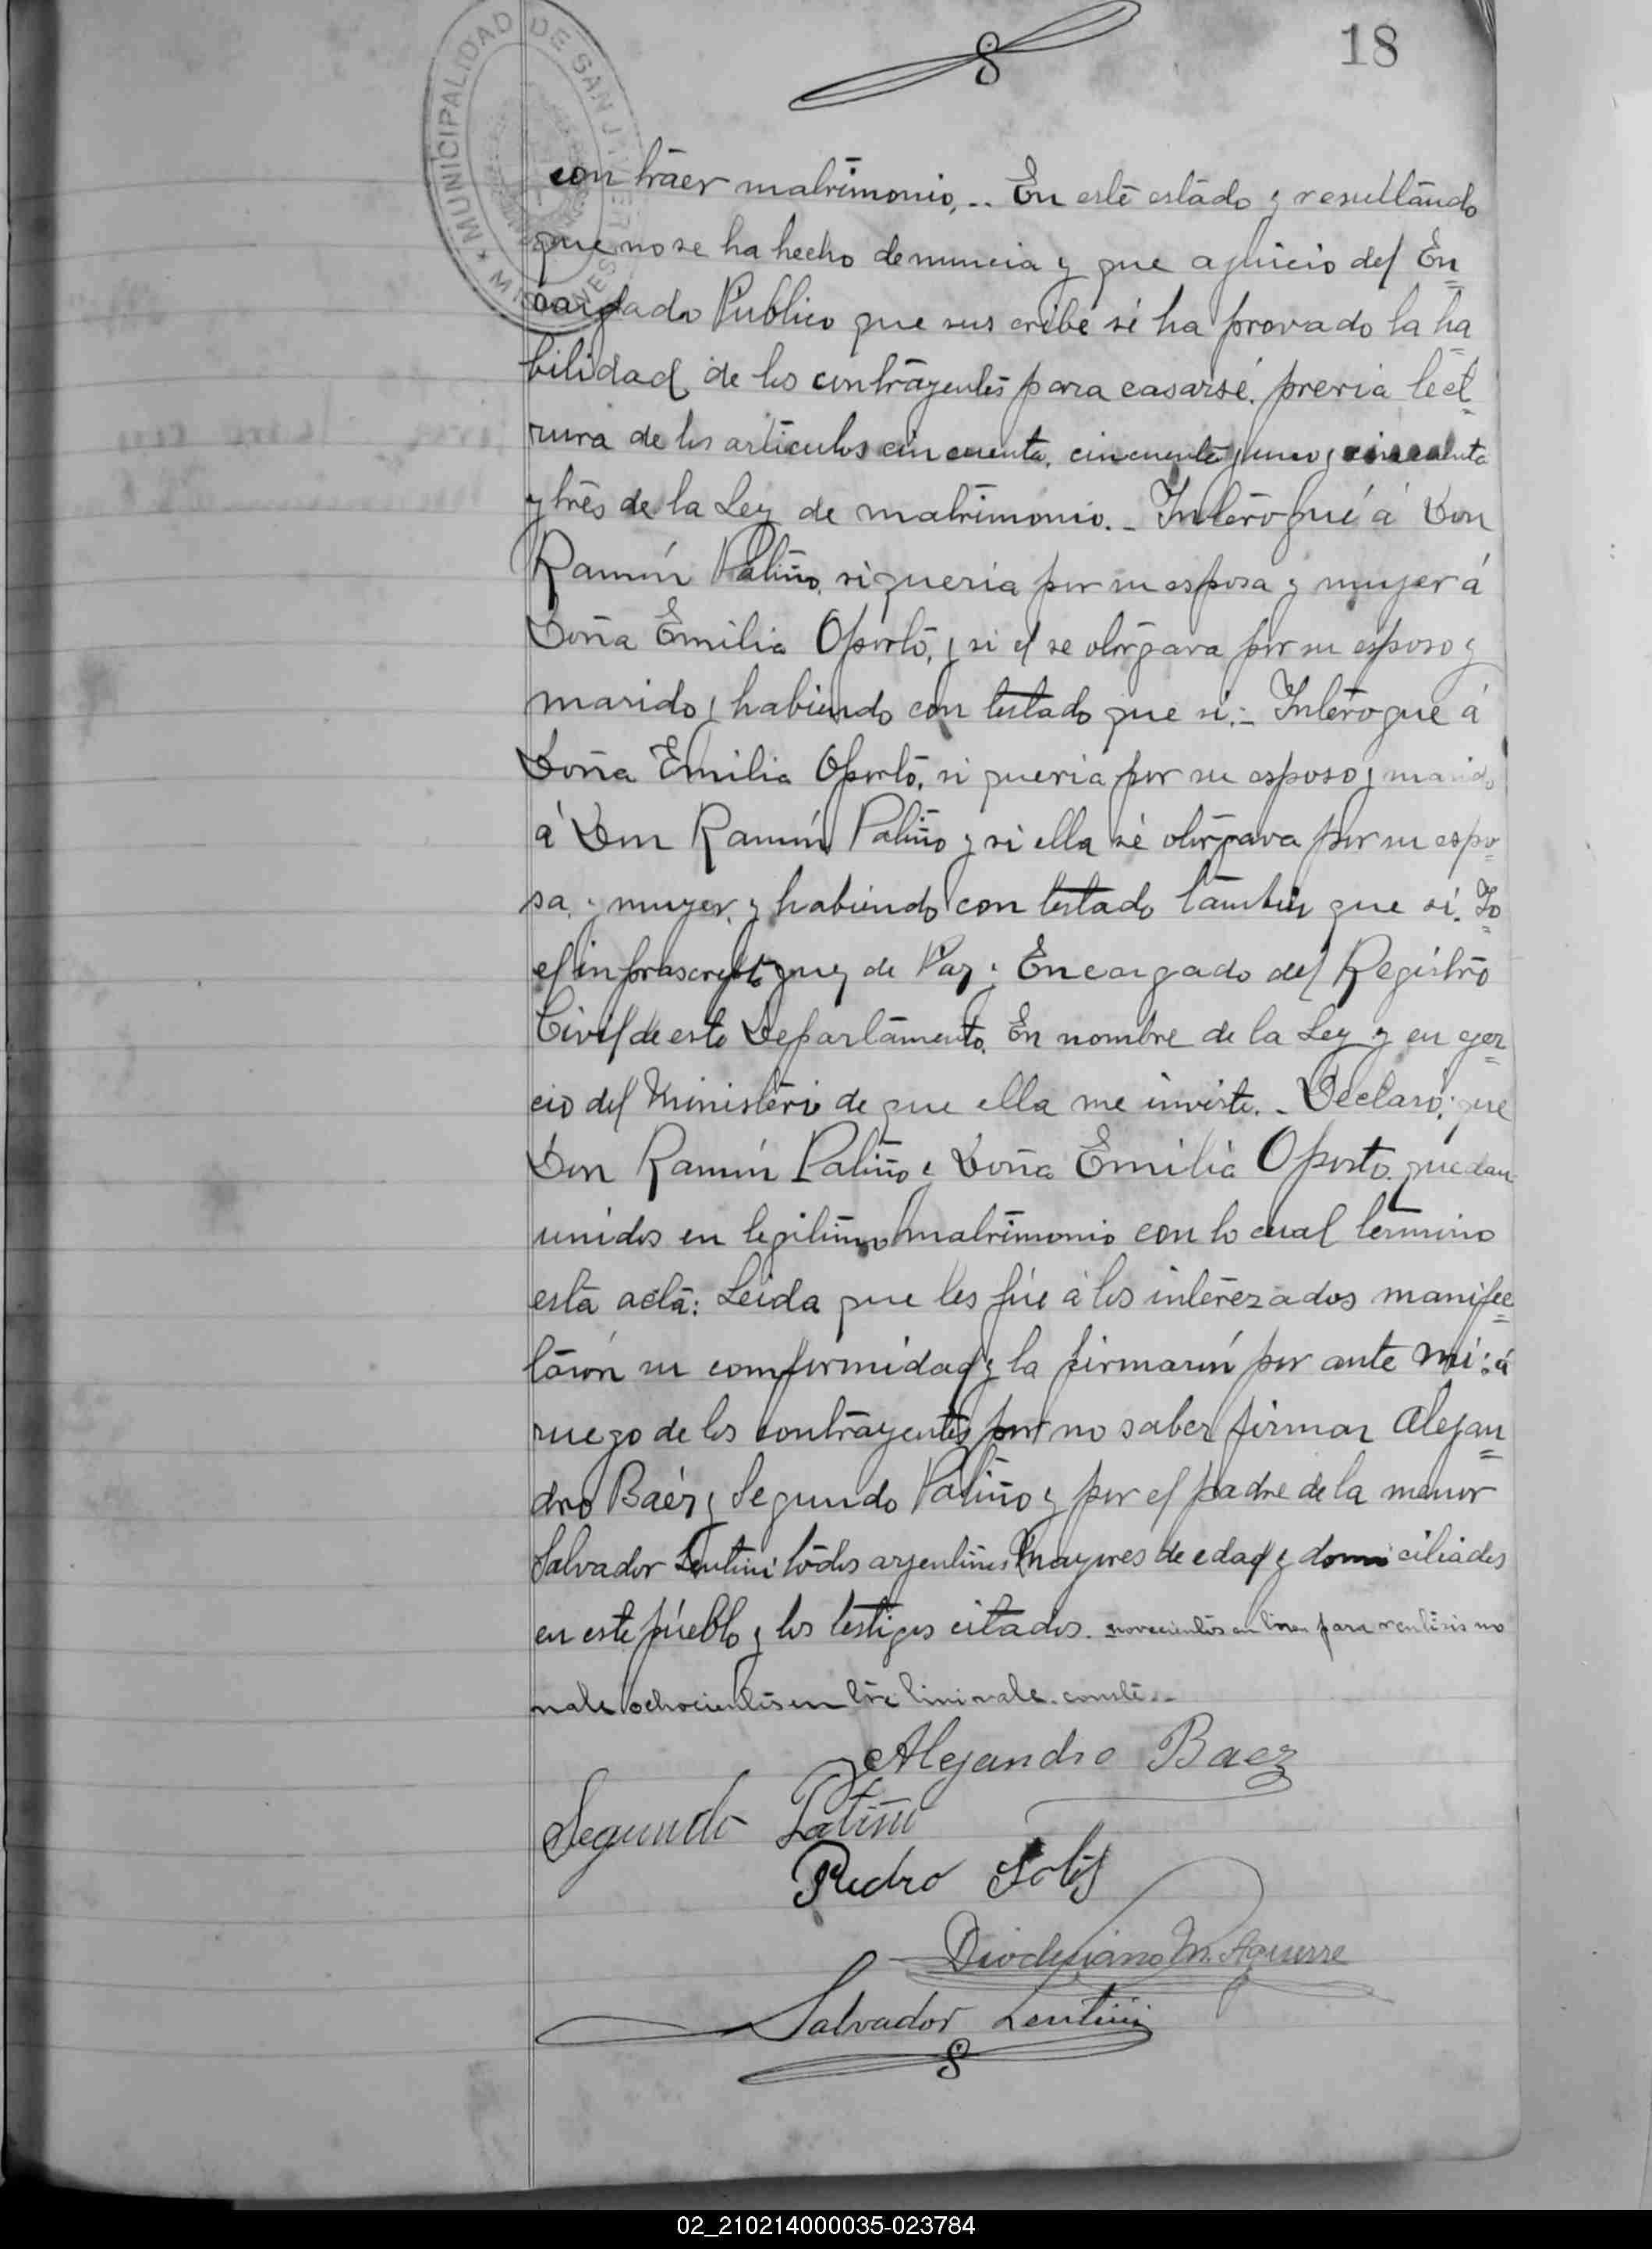 18
MUNICIPALIDAD DE SAN JAVIER
MISIONES
contraer matrimonio,.. En este estado y resultando
que no se ha hecho denuncia y que a juicio del En=
cargado Publico que suscribe sé ha provado la ha=
bilidad de los contrayentes para casarsé. previa lect=
rura de los articulos cincuenta, cincuenta y uno y cincuenta
y trés de la Ley de matrimonio.- Interogué á Don
Ramón Patiño, si queria por su esposa y muyer á
Doña Emilia Oporto, y si el se otorgava por su esposo y
marido y habiendo contestado que si:- Interogue á
Doña Emilia Oporto, si queria por su esposo y marido
á Don Ramón Patiño y si ella sé otorgava por su espo=
sa, y muyer, y habiendo contestado tambien que sí. Yo
el infrascrypto Juez de Paz y Encargado del Registro
Civil de este Departamento, En nombre de la Ley y en ejer=
cio del Ministerio de que ella me inviste.- Declaro; que
Don Ramón Patiño y Doña Emilia Oporto quedan
unidos en legitimo matrimonio con lo cual termino
esta acta: Leida que les fúe á los interezados manifes=
taron su comformidad y la firmarón por ante mi: á
ruego de los contrayentes por no saber firmar Alejan=
dro Baéz y Segundo Patiño y por el padre de la menor
Salvador Lentini todos argentinos mayores de edad y domiciliados
en este púeblo y los testigos citados. novecientos en linea para no
vale ochocientos en tre lini vale. conste..
Alejandro Baez
Segundo Patiño
Pedro Solis
Diocleciano M. Aguerre
Salvador Lentini
02_210214000035-023784